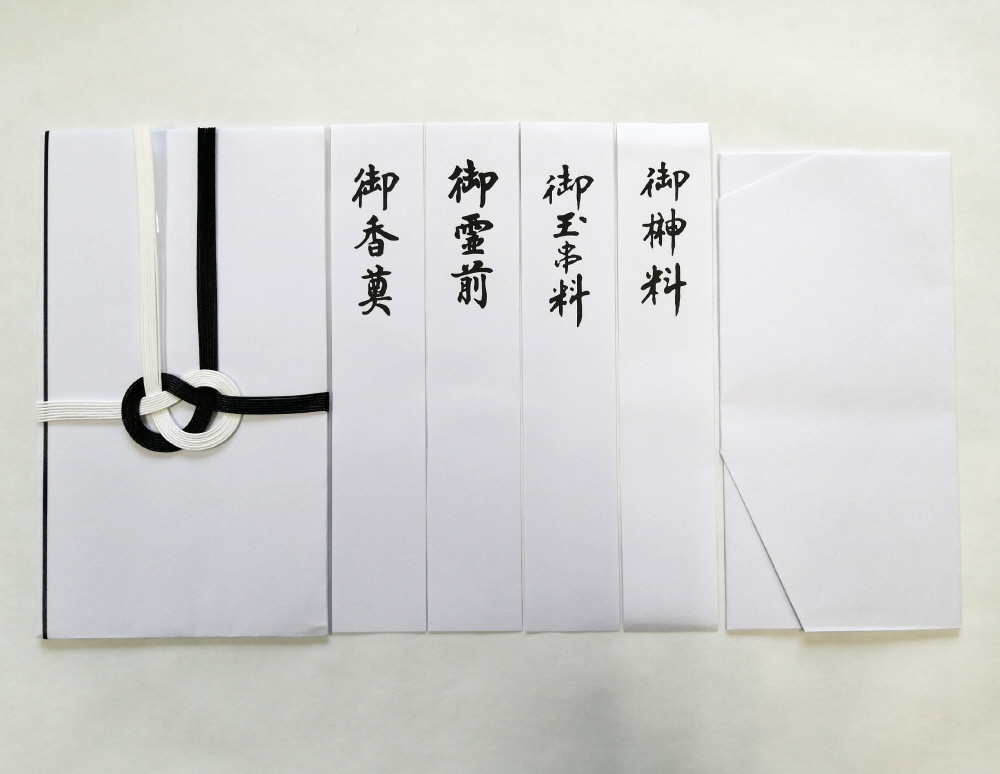 御香奠
御霊前
御玉串料
御榊料